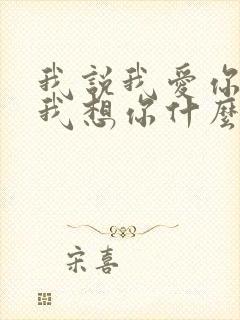 我說我愛你
我想你什麼
宋喜